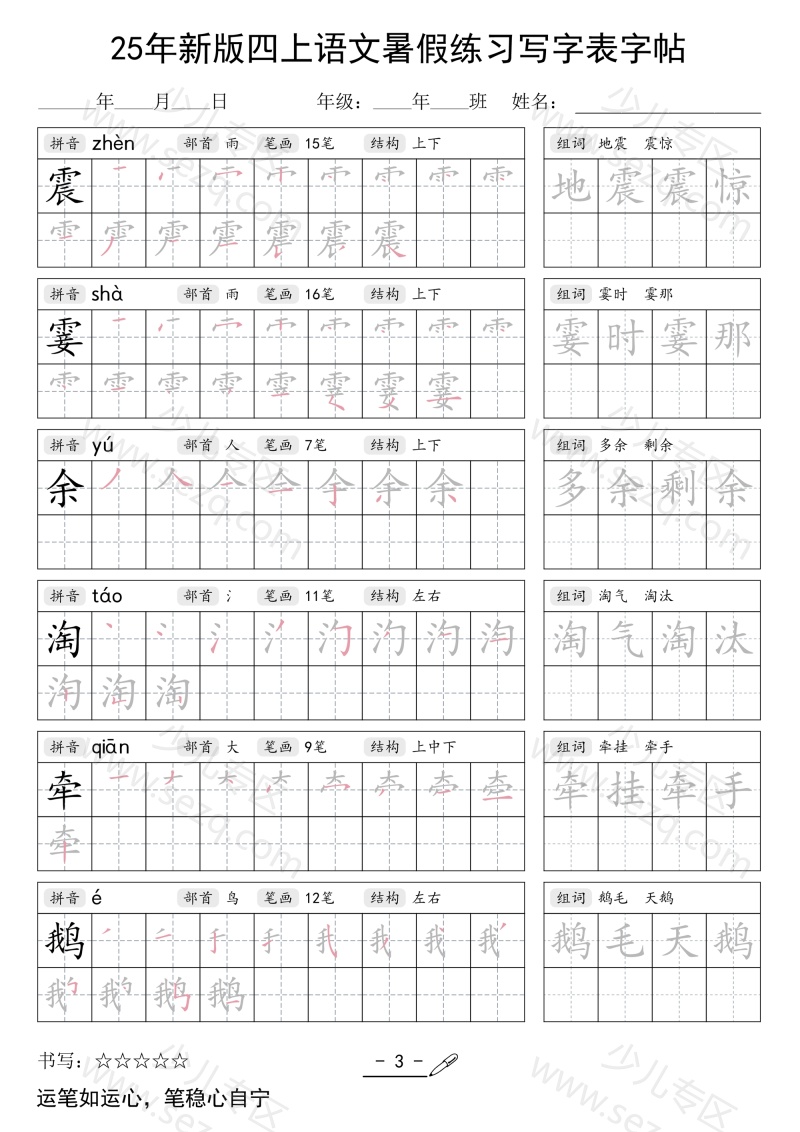 25年新版四上语文暑假练习写字表字帖
______年____月____日 年级：____年____班 姓名：____________________
拼音 zhèn 部首 雨 笔画 15笔 结构 上下 组词 地震 震惊
震 地震震惊
拼音 shà 部首 雨 笔画 16笔 结构 上下 组词 霎时 霎那
霎 霎时霎那
拼音 yú 部首 人 笔画 7笔 结构 上下 组词 多余 剩余
余 多余剩余
拼音 táo 部首 氵 笔画 11笔 结构 左右 组词 淘气 淘汰
淘 淘气淘汰
拼音 qiān 部首 大 笔画 9笔 结构 上中下 组词 牵挂 牵手
牵 牵挂牵手
拼音 é 部首 鸟 笔画 12笔 结构 左右 组词 鹅毛 天鹅
鹅 鹅毛天鹅
书写：☆☆☆☆☆ - 3 -
运笔如运心，笔稳心自宁
少儿专区
www.sezq.com